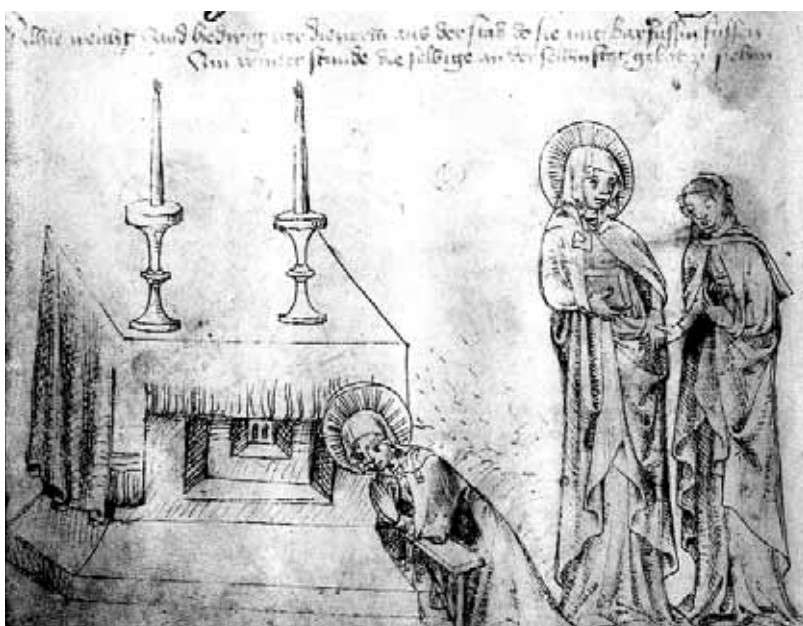 Alhie weicht Sand hedwig ire dienerin aus der stad do sie mit Barfussin fussen
Am winter stunde die selbige an der selbin stat gebot zu stehen